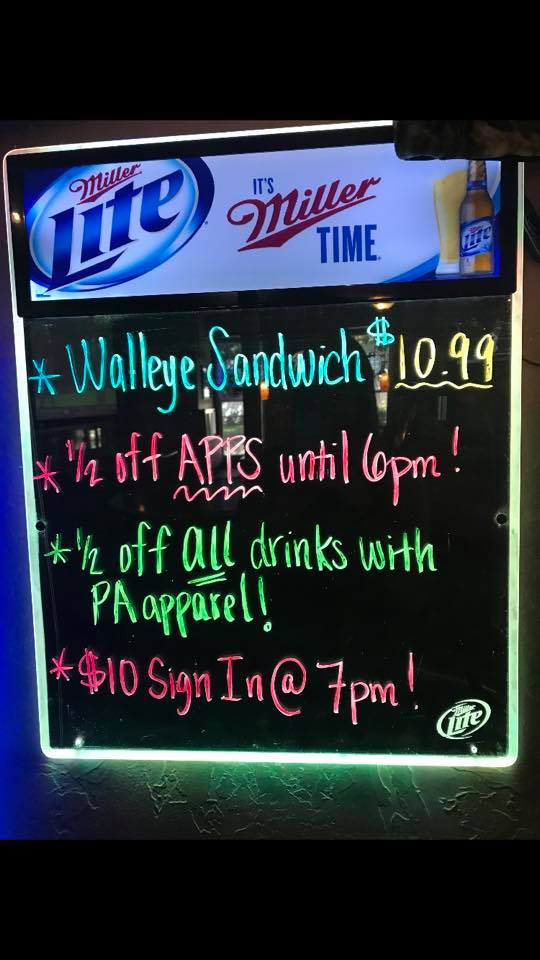 Miller
Lite
IT'S
Miller
TIME
Lite
* Walleye Sandwich $10.99
* 1/2 off APPS until 6pm!
* 1/2 off all drinks with
PA apparel!
* $10 Sign In @ 7pm!
Miller
Lite